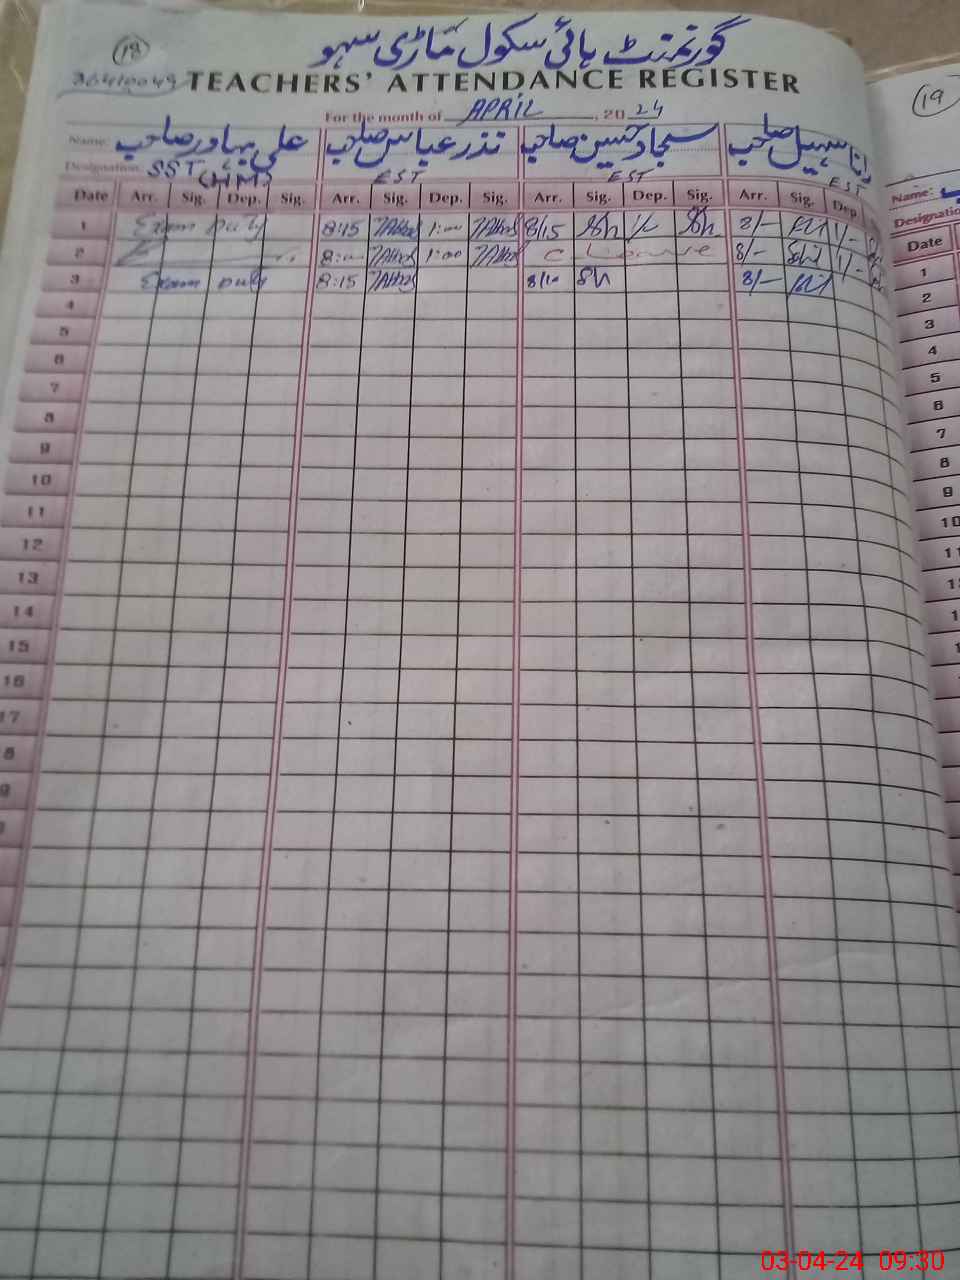 گورنمنٹ ہائی سکول ماڑی سہو
18
36410049 TEACHERS' ATTENDANCE REGISTER
For the month of APRIL, 2024
Name: علی بہادر صاحب نذر عباس صاحب سجاد حسین صاحب رانا سہیل صاحب
Designation: SST (HM) EST EST EST
Date Arr. Sig. Dep. Sig. Arr. Sig. Dep. Sig. Arr. Sig. Dep. Sig. Arr. Sig. Dep
1 Exam Duty 8:15 1:00 8/15 Sh 1/- Sh 8/- 1/-
2 8:00 1:00 8/- 1/-
3 Exam Duty 8:15 8/10 Sh 8/-
4
5
6
7
8
9
10
11
12
13
14
15
16
17
8
9
19
Name:
Designatio
Date
1
2
3
4
5
6
7
8
9
10
11
1
1
1
03-04-24 09:30